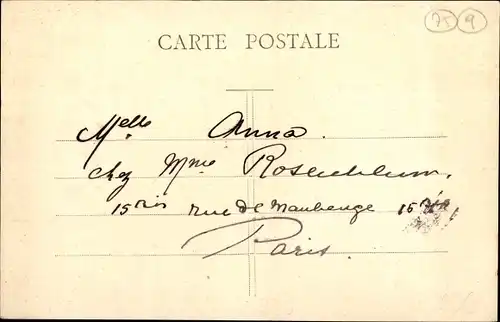 75 9
CARTE POSTALE
Melle Anna.
chez Mme Rosenblum.
15bis rue de Maubeuge 15bis
Paris.